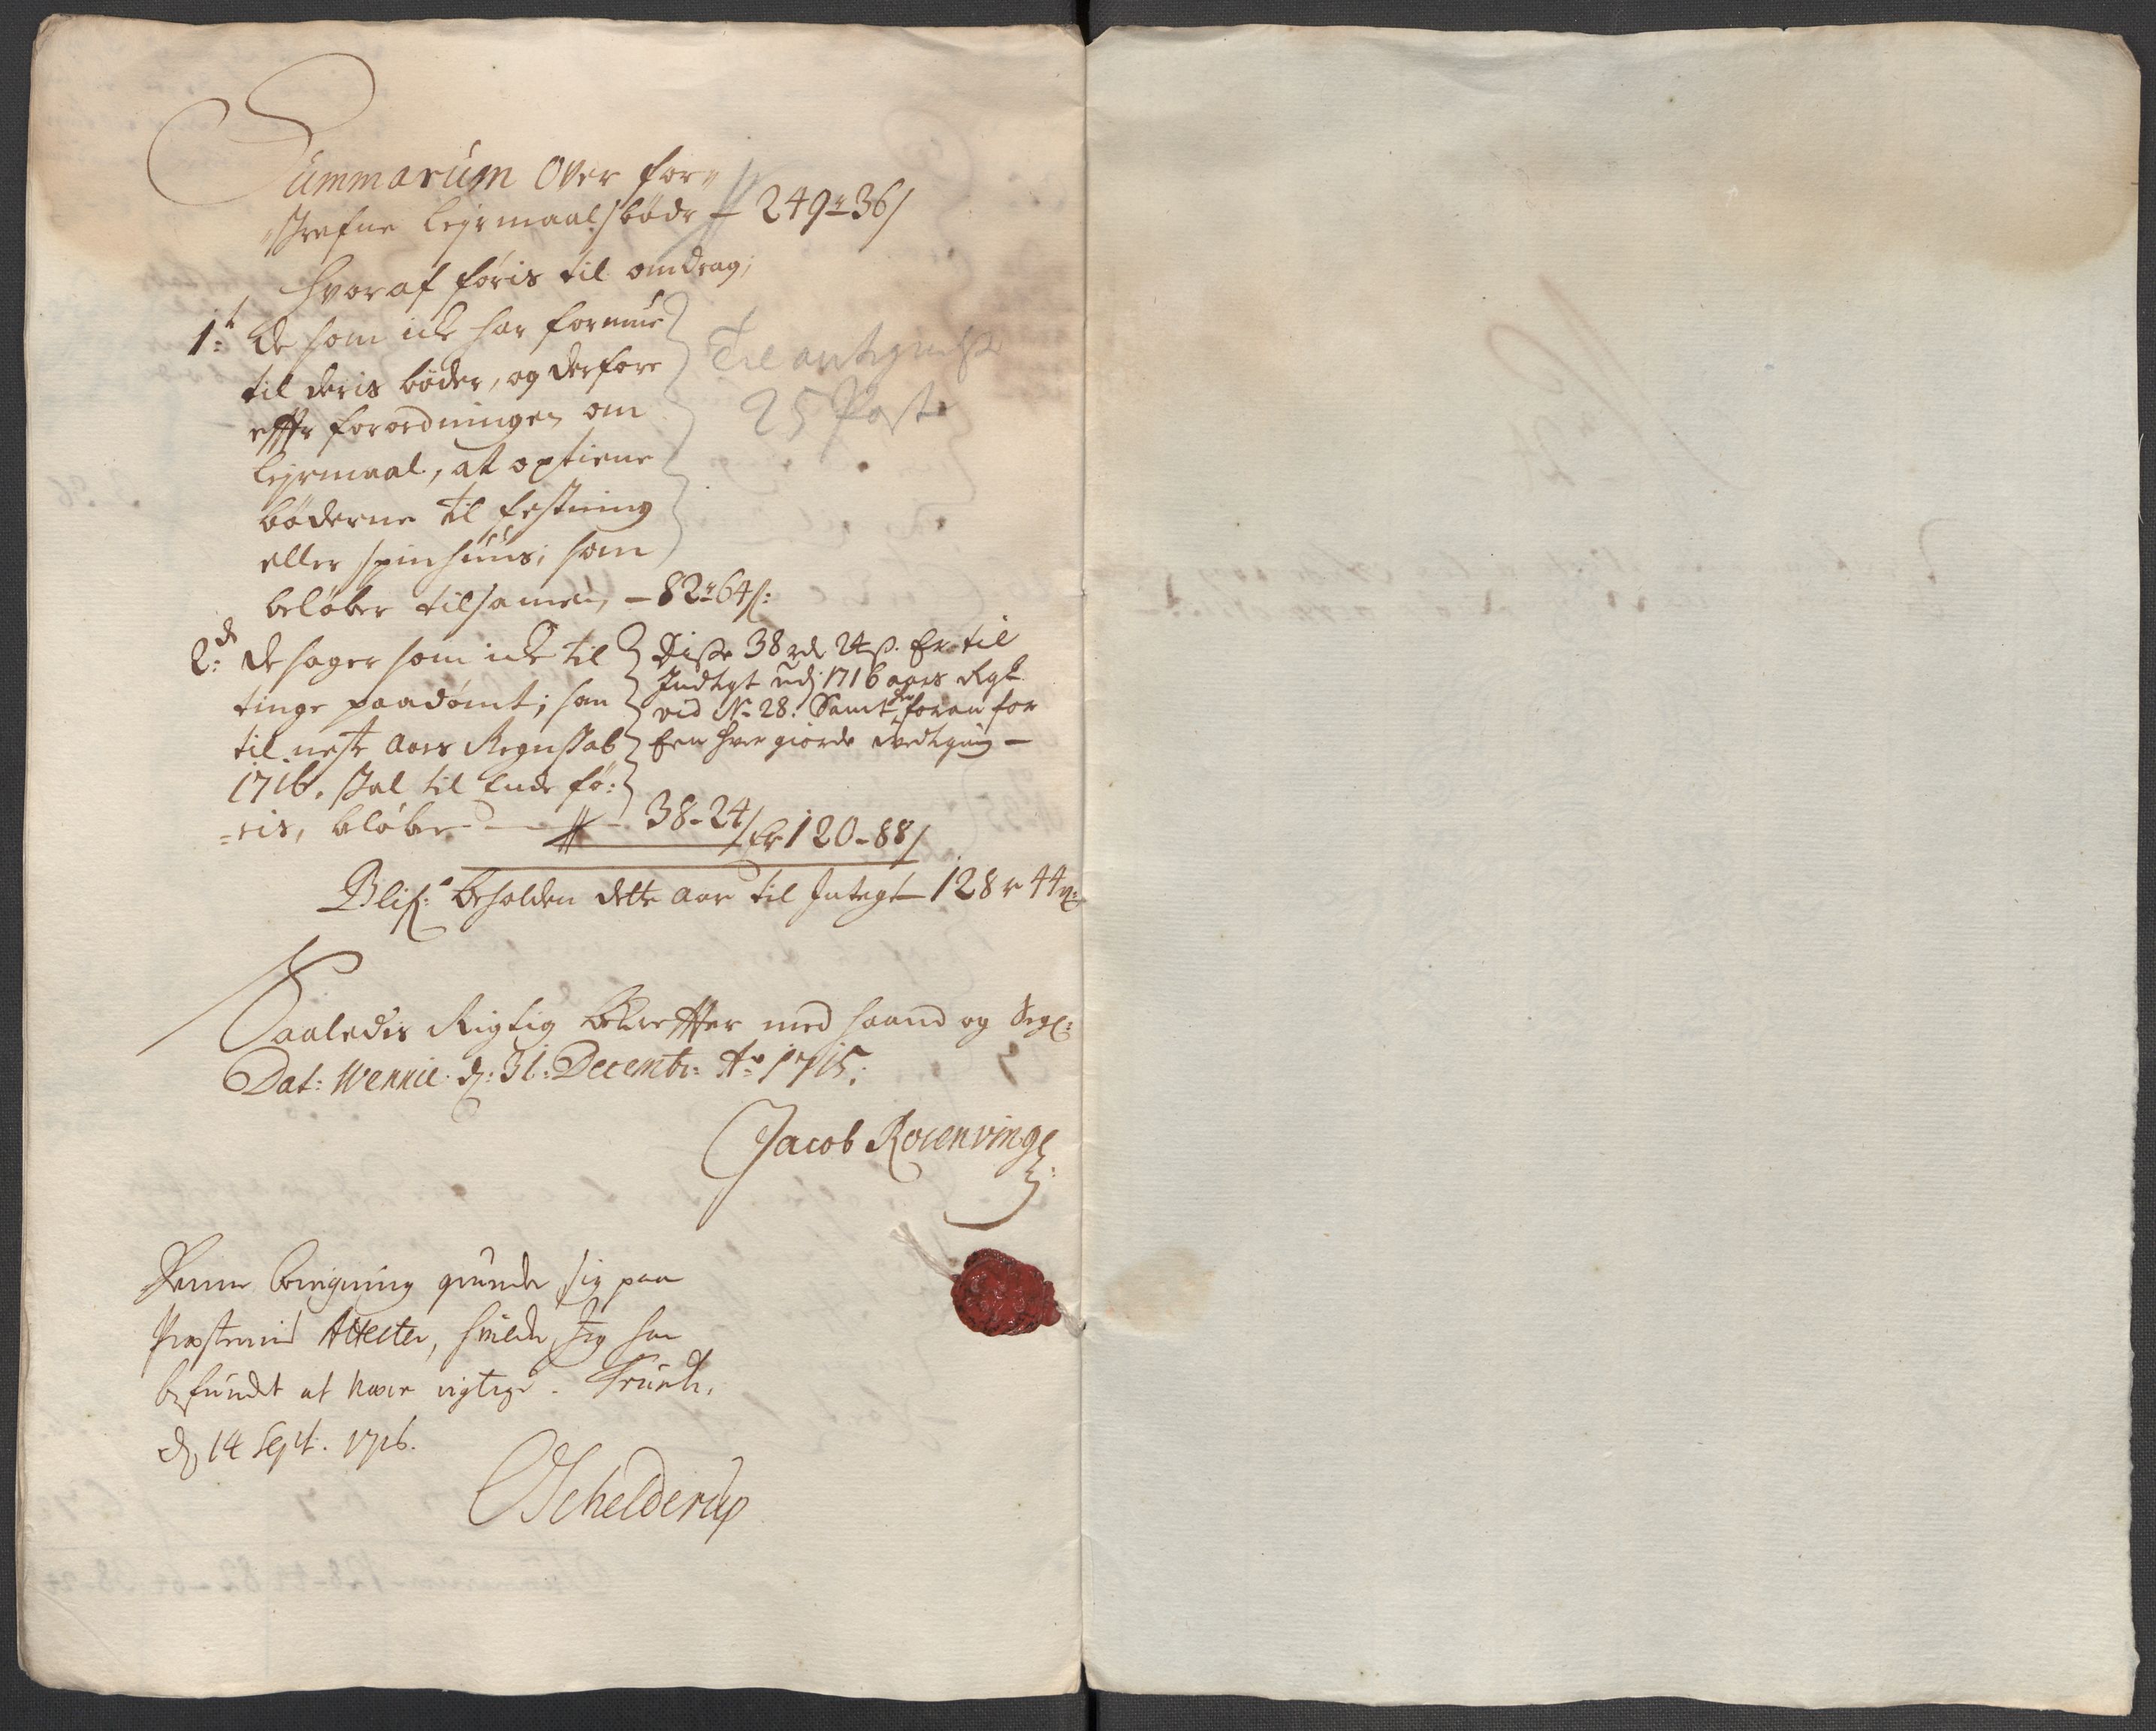 Summarum Over for„
„skrefne Leyrmaals bøder — 249 r 36 s
hvoraf føris til omdrag;
1:t de som icke har formue
til deris bøder, og derfore
effter forordningen om
Leyrmaal, at optiene
bøderne til festning
eller spinhuus; som
beløber tilsamen, — 82 r 64 s:
Til antegnelse
25 Post
2:de de sager som icke til
tinge paadømt; som
til neste Aars Regnskab
1716. skal til Ende fø:
=ris, beløber — 38 - 24 s
Disse 38 rdr 24 s. Er til
Indtegt udj 1716 aars Rgk
vid No 28. Samt foran for
Een hver giorde
Er 120 - 88 s
Blifr beholden dette Aar til Integt — 128 r 44 s:
Saaledis Rigtig bekreffter med haand og Segl:
Dat: Wennie d: 31: Decembr: Ao 1715:
Jacob Rosenvinge
Denne beregning grunder sig paa
Præsternis Attester, hvilcke Jeg har
befundet at være rigtige. Trundh.
d 14 Sept. 1716.
OSchelderup